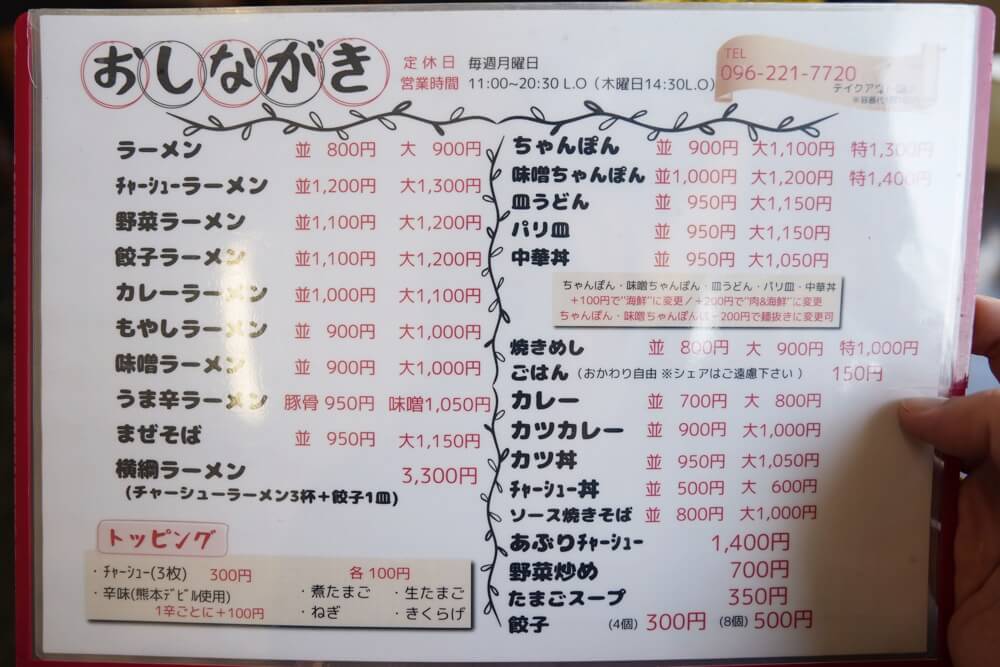 おしながき
定休日 毎週月曜日
営業時間 11:00~20:30 L.O（木曜日14:30L.O）
TEL
096-221-7720
テイクアウト
ラーメン 並 800円 大 900円
ﾁｬｰｼｭｰラーメン 並1,200円 大1,300円
野菜ラーメン 並1,100円 大1,200円
餃子ラーメン 並1,100円 大1,200円
カレーラーメン 並1,000円 大1,100円
もやしラーメン 並 900円 大1,000円
味噌ラーメン 並 900円 大1,000円
うま辛ラーメン 豚骨 950円 味噌1,050円
まぜそば 並 950円 大1,150円
横綱ラーメン 3,300円
(チャーシューラーメン3杯＋餃子1皿)
トッピング
・ﾁｬｰｼｭｰ(3枚) 300円
・辛味(熊本ﾃﾞﾋﾞﾙ使用)
1辛ごとに＋100円
各100円
・煮たまご ・生たまご
・ねぎ ・きくらげ
ちゃんぽん 並 900円 大1,100円 特1,300円
味噌ちゃんぽん 並1,000円 大1,200円 特1,400円
皿うどん 並 950円 大1,150円
パリ皿 並 950円 大1,150円
中華丼 並 950円 大1,050円
ちゃんぽん・味噌ちゃんぽん・皿うどん・パリ皿・中華丼
＋100円で"海鮮"に変更／＋200円で"肉&海鮮"に変更
ちゃんぽん・味噌ちゃんぽんは－200円で麺抜きに変更可
焼きめし 並 800円 大 900円 特1,000円
ごはん（おかわり自由 ※シェアはご遠慮下さい） 150円
カレー 並 700円 大 800円
カツカレー 並 900円 大1,000円
カツ丼 並 950円 大1,050円
ﾁｬｰｼｭｰ丼 並 500円 大 600円
ソース焼きそば 並 800円 大1,000円
あぶりﾁｬｰｼｭｰ 1,400円
野菜炒め 700円
たまごスープ 350円
餃子 (4個) 300円 (8個) 500円